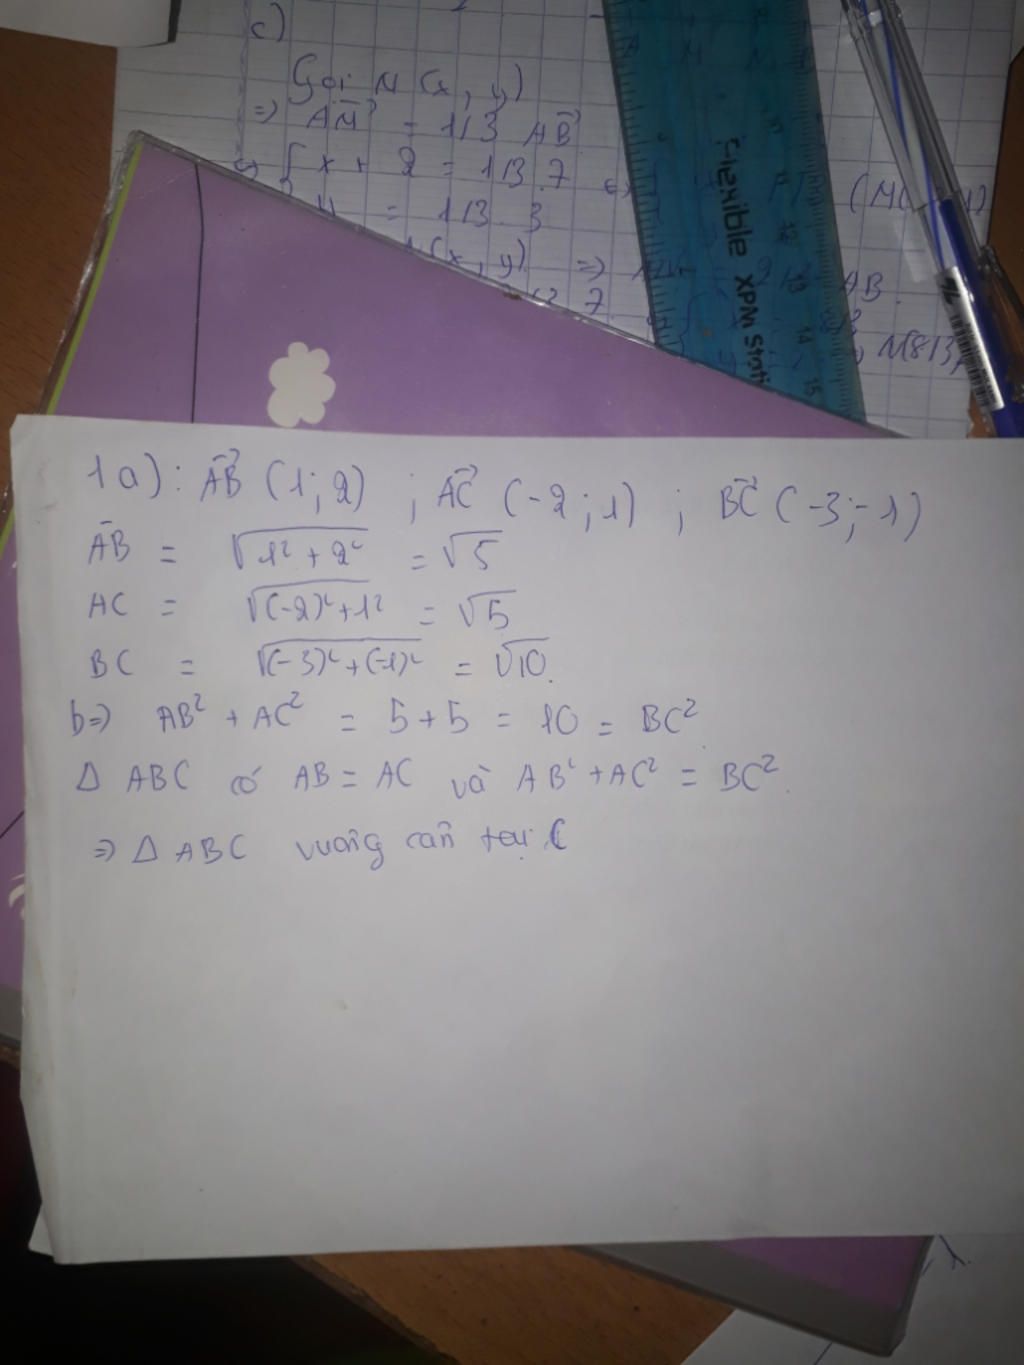 c)
Gọi M (x, y)
=> AM = 113 AB
x + 2 = 113.7
= 113 3
(x, y) =>
7
AB.
Flexible XPM
12
13
14
15
1a): AB (1; 2) ; AC (-2; 1) ; BC (-3; -1)
AB = √1² + 2² = √5
AC = √(-2)² + 1² = √5
BC = √(-3)² + (-1)² = √10.
b=) AB² + AC² = 5 + 5 = 10 = BC².
Δ ABC có AB = AC và AB² + AC² = BC².
=> Δ ABC vuông cân tại C